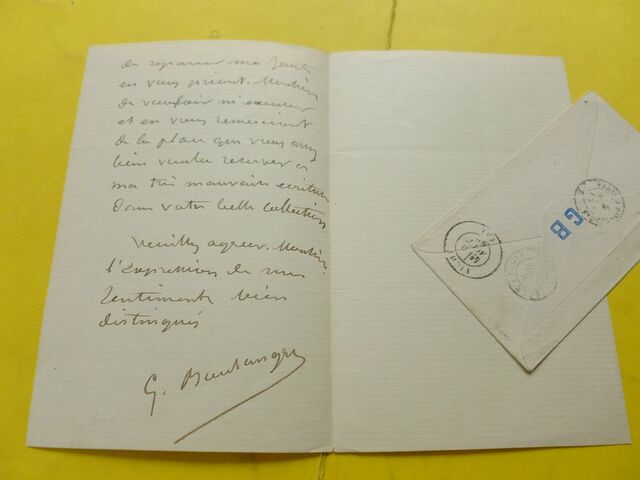 de réparer ma faute
en vous priant, Monsieur
de vouloir m'excuser
et en vous remerciant
de la place que vous avez
bien voulu réserver à
ma très mauvaise écriture
dans votre belle collection
Veuillez agréer, Monsieur
l'Expression de mes
Sentiments bien
distingués
G. Boulanger
GB